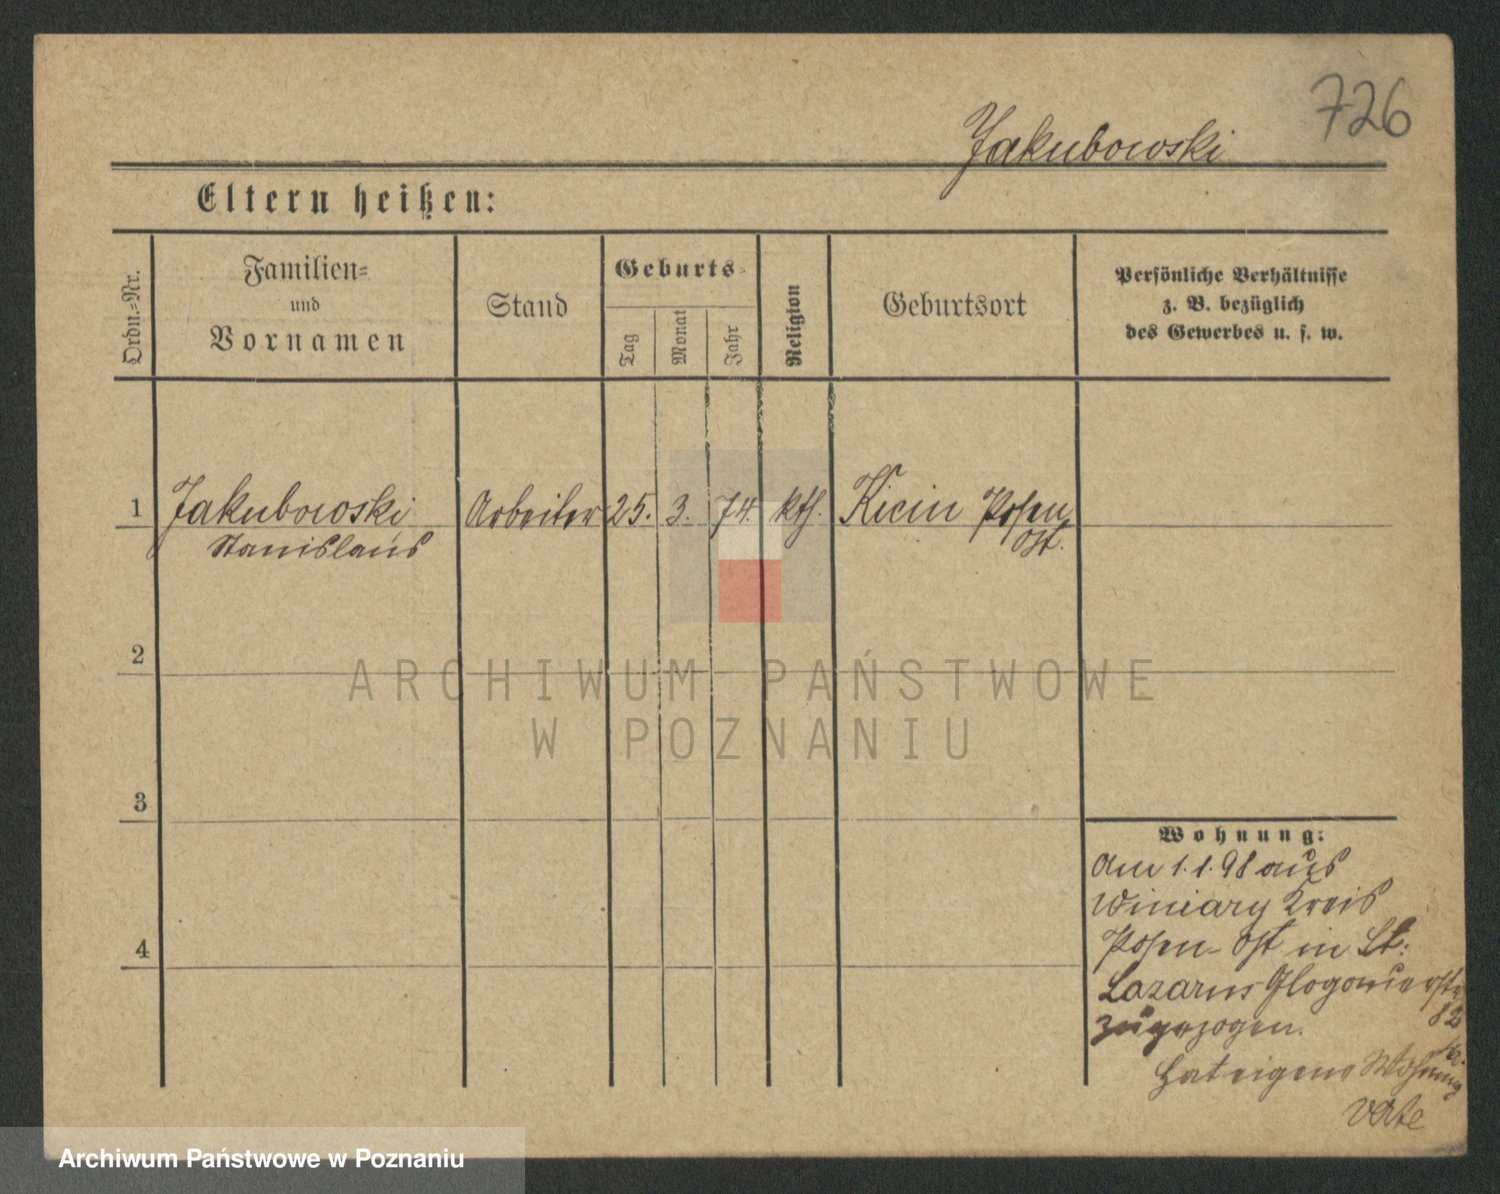 726
Jakubowski
Eltern heißen:
Ordn.-Nr.
Familien-
und
Vornamen
Stand
Geburts-
Tag
Monat
Jahr
Religion
Geburtsort
Persönliche Verhältnisse
z. B. bezüglich
des Gewerbes u. s. w.
1 Jakubowski Arbeiter 25. 3. 74. kth. Kicin Posen
Stanislaus Ost.
2
ARCHIWUM PAŃSTWOWE
W POZNANIU
3
Wohnung:
Am 1.1.98 aus
Winiary Kreis
4
Posen-Ost in St:
Lazarus Glogauerstr
82
zugezogen.
Hat eigene Wohnung
Archiwum Państwowe w Poznaniu